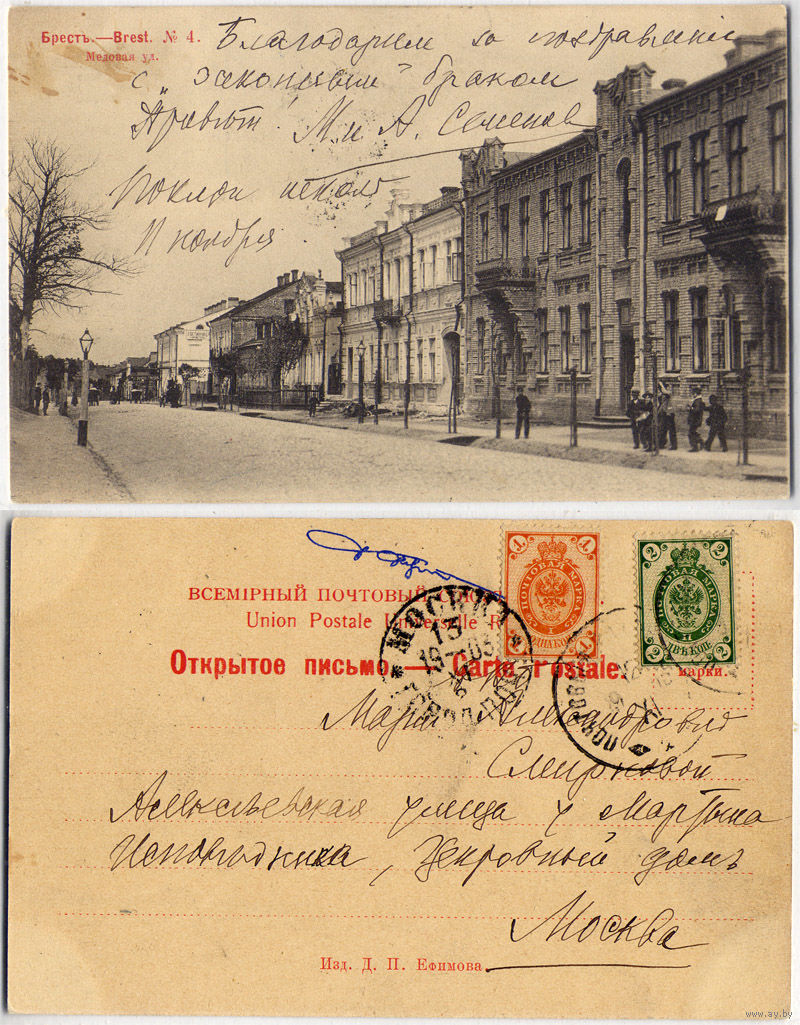 Брестъ.—Brest. № 4.
Медовая ул.
Благодарим за поздравленіе
с „законным" браком
Привѣт! М и А. Семенов
Поклон
11 ноября
ВСЕМІРНЫЙ ПОЧТОВЫЙ СОЮ
Union Postale Universelle R
Открытое письмо.—Carte Postale.
марки.
1 1
ПОЧТОВАЯ МАРКА
ОДНАКОП.
2 2
ПОЧТОВАЯ МАРКА
ДВѢ КОП.
МОСКВА
13
19 05
Маріи Александровнѣ
Смирновой
Алексѣевская улица у Мартына
Исповѣдника, церковный домъ
Москва
Изд. Д. П. Ефимова.
www.ay.by